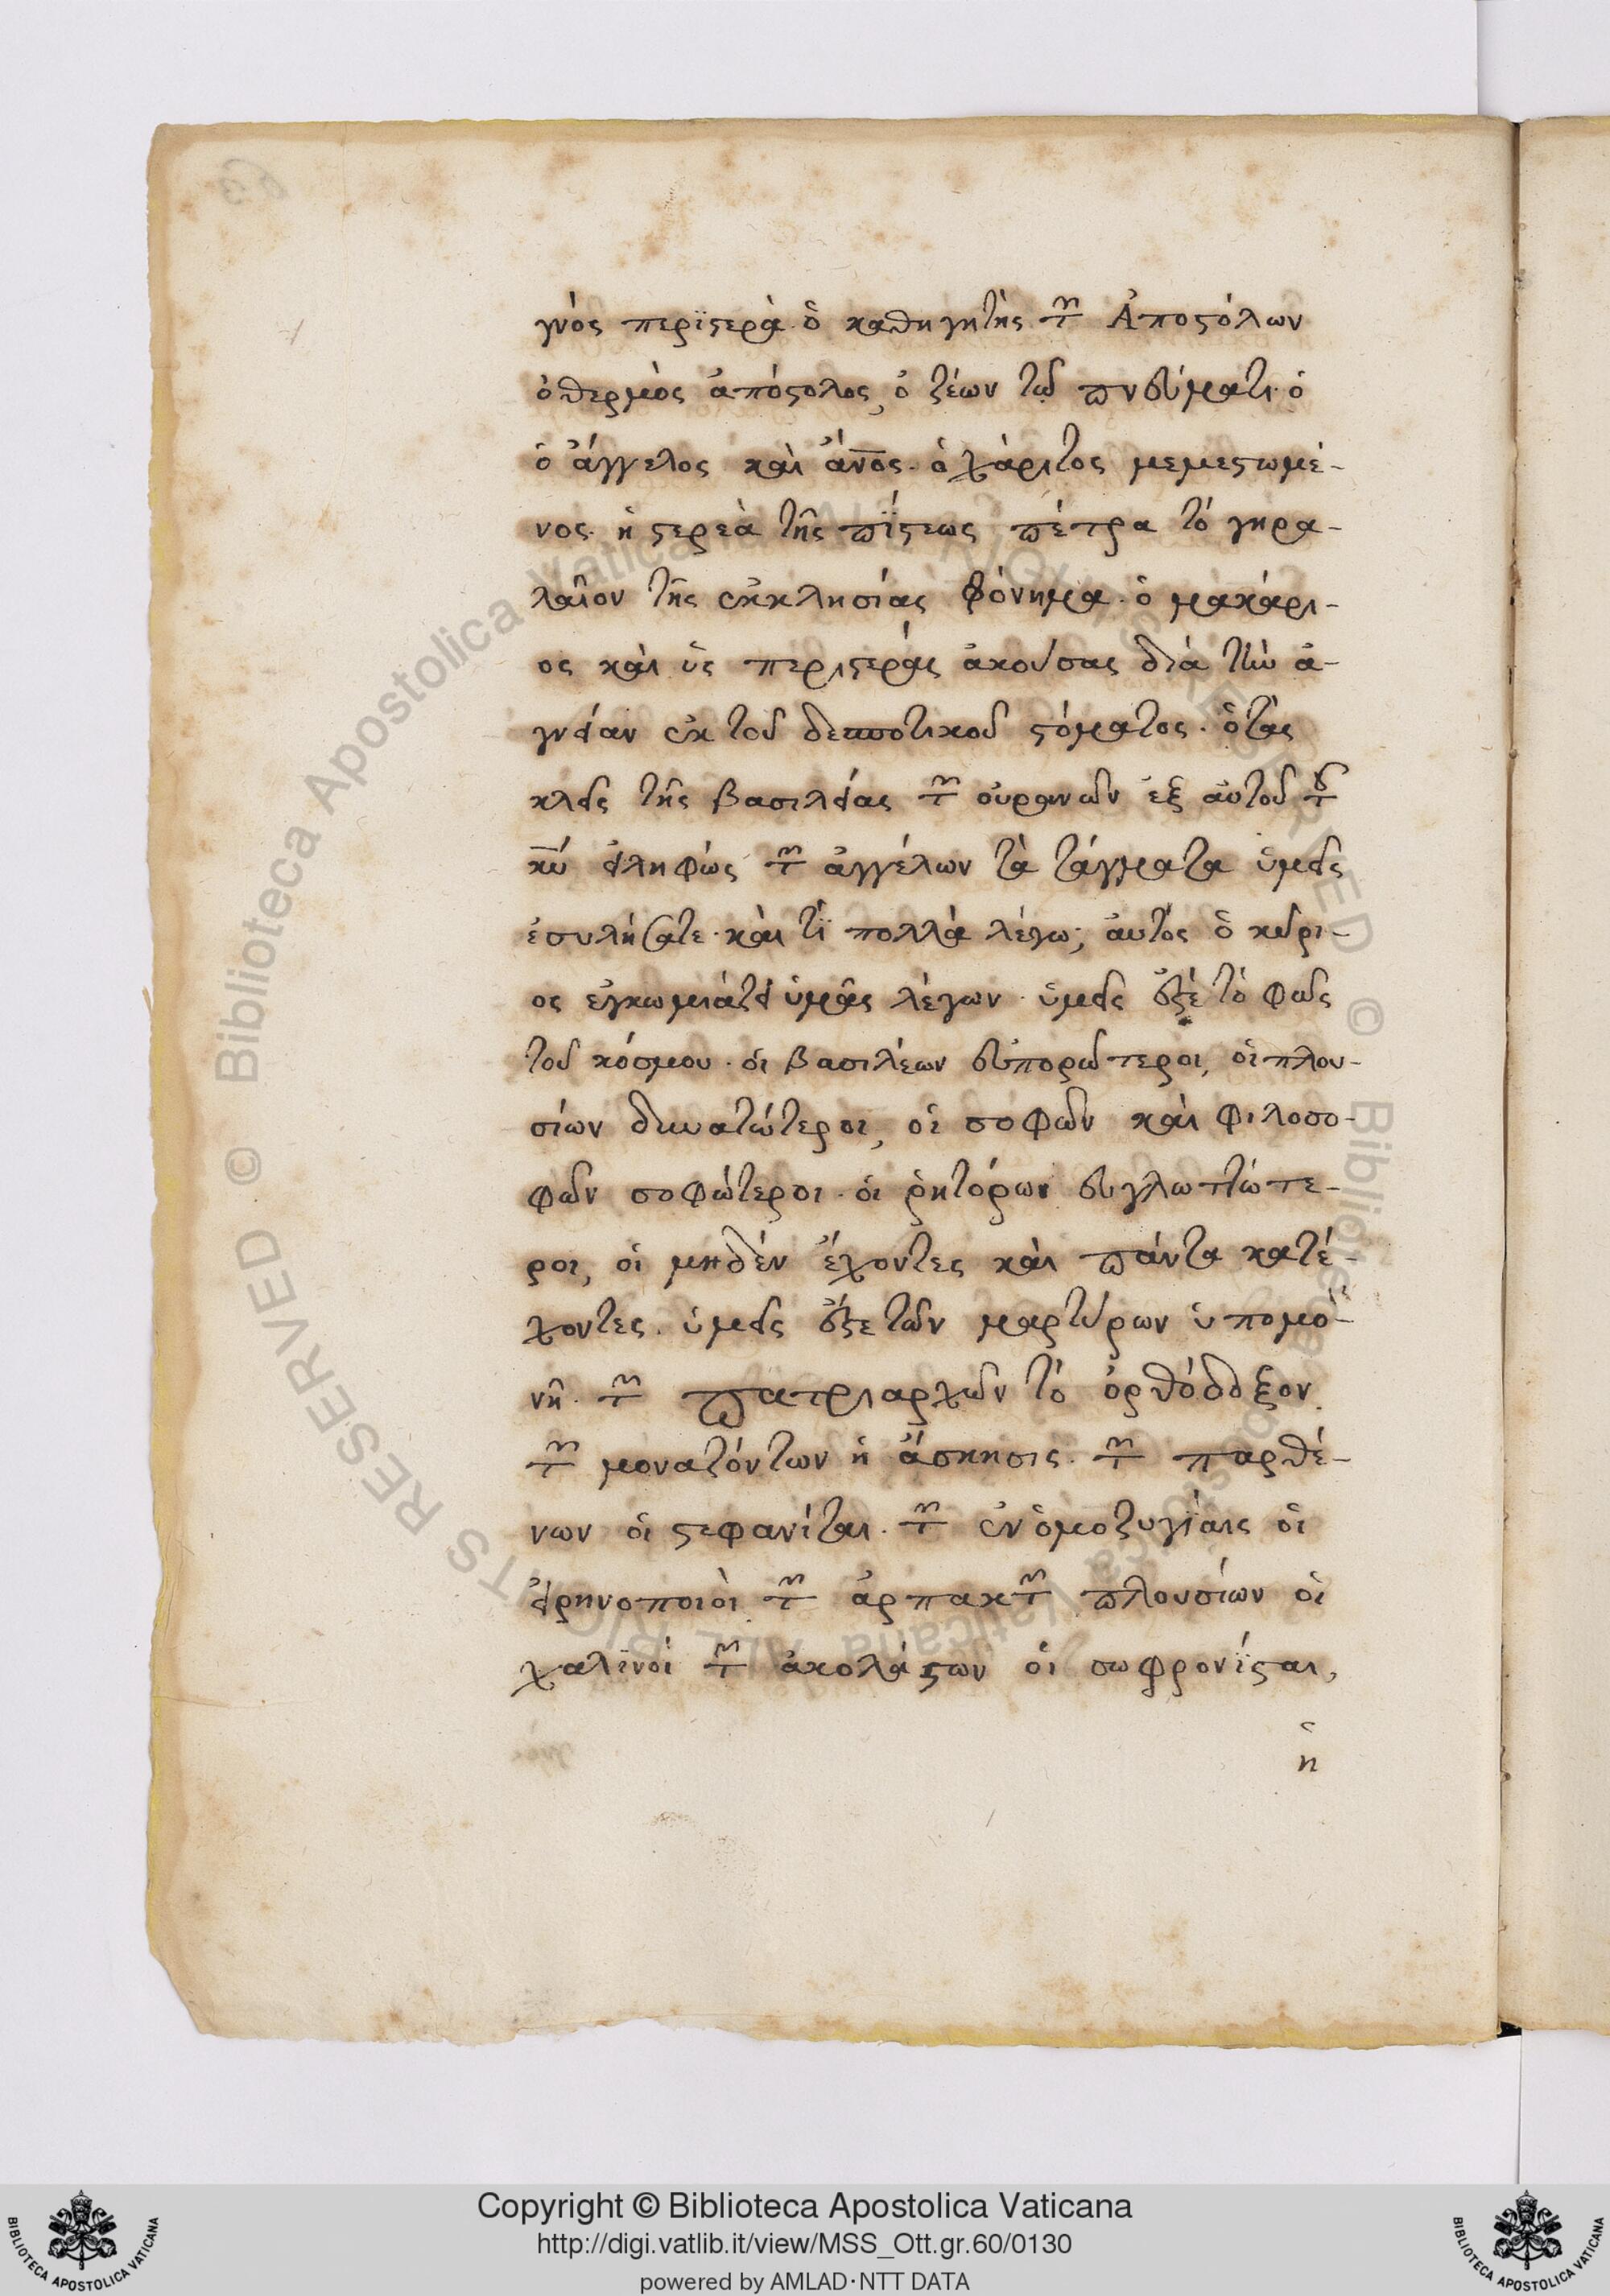 γνὸς περϊστερὰ· ὁ καθηγητὴς τῶν Ἀποστόλων
ὁ θερμὸς ἀπόστολος, ὁ ζέων τῷ πνεύματι· ὁ
ὁ ἄγγελος καὶ ἄνος· ὁ χάριτος μεμεστωμέ-
νος· ἡ στερεὰ τῆς πΐστεως πέτρα τὸ γηρα-
λαῖον τῆς ἐκκλησίας φρόνημα· ὁ μακάρι-
ος καὶ ὑς περιστερᾶς ἀκούσας διὰ τὴν ἁ-
γνείαν ἐκ τοῦ δεσποτικοῦ στόματος· ὁ τὰς
κλεῖς τῆς βασιλείας τῶν οὐρανῶν ἐξ αὐτοῦ τοῦ
κυ εἰληφὼς τῶν ἀγγέλων τὰ τάγματα ὑμεῖς
ἐσυλήσατε· καὶ τί πολλὰ λέγω; αὐτὸς ὁ κύρι-
ος ἐγκωμιάζει ὑμᾶς λέγων· ὑμεῖς ἐστὲ τὸ φῶς
τοῦ κόσμου· οἱ βασιλέων εὐπορώτεροι, οἱ πλου-
σίων δυνατώτεροι, οἱ σοφῶν καὶ φιλοσο-
φῶν σοφώτεροι· οἱ ῥητόρων εὐγλωττώτε-
ροι, οἱ μηδὲν ἔχοντες καὶ πάντα κατέ-
χοντες· ὑμεῖς ἐστε τῶν μαρτύρων ὑπομο-
νὴ· τῶν πατριαρχῶν τὸ ὀρθόδοξον
τῶν μοναζόντων ἡ ἄσκησις· τῶν παρθέ-
νων οἱ στεφανίται· τῶν ἐν ὁμοζυγίαις οἱ
εἰρηνοποιοὶ τῶν ἁρπακτῶν πλουσίων οἱ
χαλϊνοὶ τῶν ἀκολάστων οἱ σωφρονΐσται,
ἡ
Copyright © Biblioteca Apostolica Vaticana
http://digi.vatlib.it/view/MSS_Ott.gr.60/0130
powered by AMLAD·NTT DATA
BIBLIOTECA APOSTOLICA VATICANA
BIBLIOTECA APOSTOLICA VATICANA
© Biblioteca Apostolica Vaticana ALL RIGHTS RESERVED
© Biblioteca Apostolica Vaticana ALL RIGHTS RESERVED